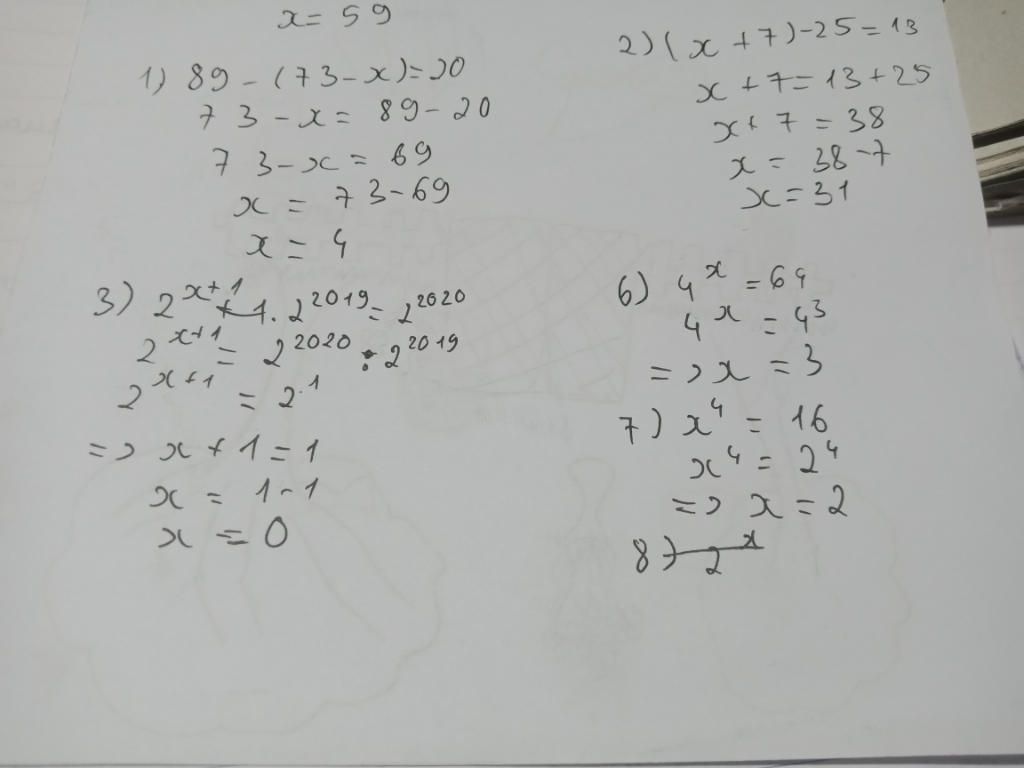 x = 59
1) 89 - (73 - x) = 20
73 - x = 89 - 20
73 - x = 69
x = 73 - 69
x = 4
2) (x + 7) - 25 = 13
x + 7 = 13 + 25
x + 7 = 38
x = 38 - 7
x = 31
3) 2^{x+1} . 2^{2019} = 2^{2020}
2^{x+1} = 2^{2020} : 2^{2019}
2^{x+1} = 2^{1}
=> x + 1 = 1
x = 1 - 1
x = 0
6) 4^{x} = 64
4^{x} = 4^{3}
=> x = 3
7) x^{4} = 16
x^{4} = 2^{4}
=> x = 2
8) 2^{x}